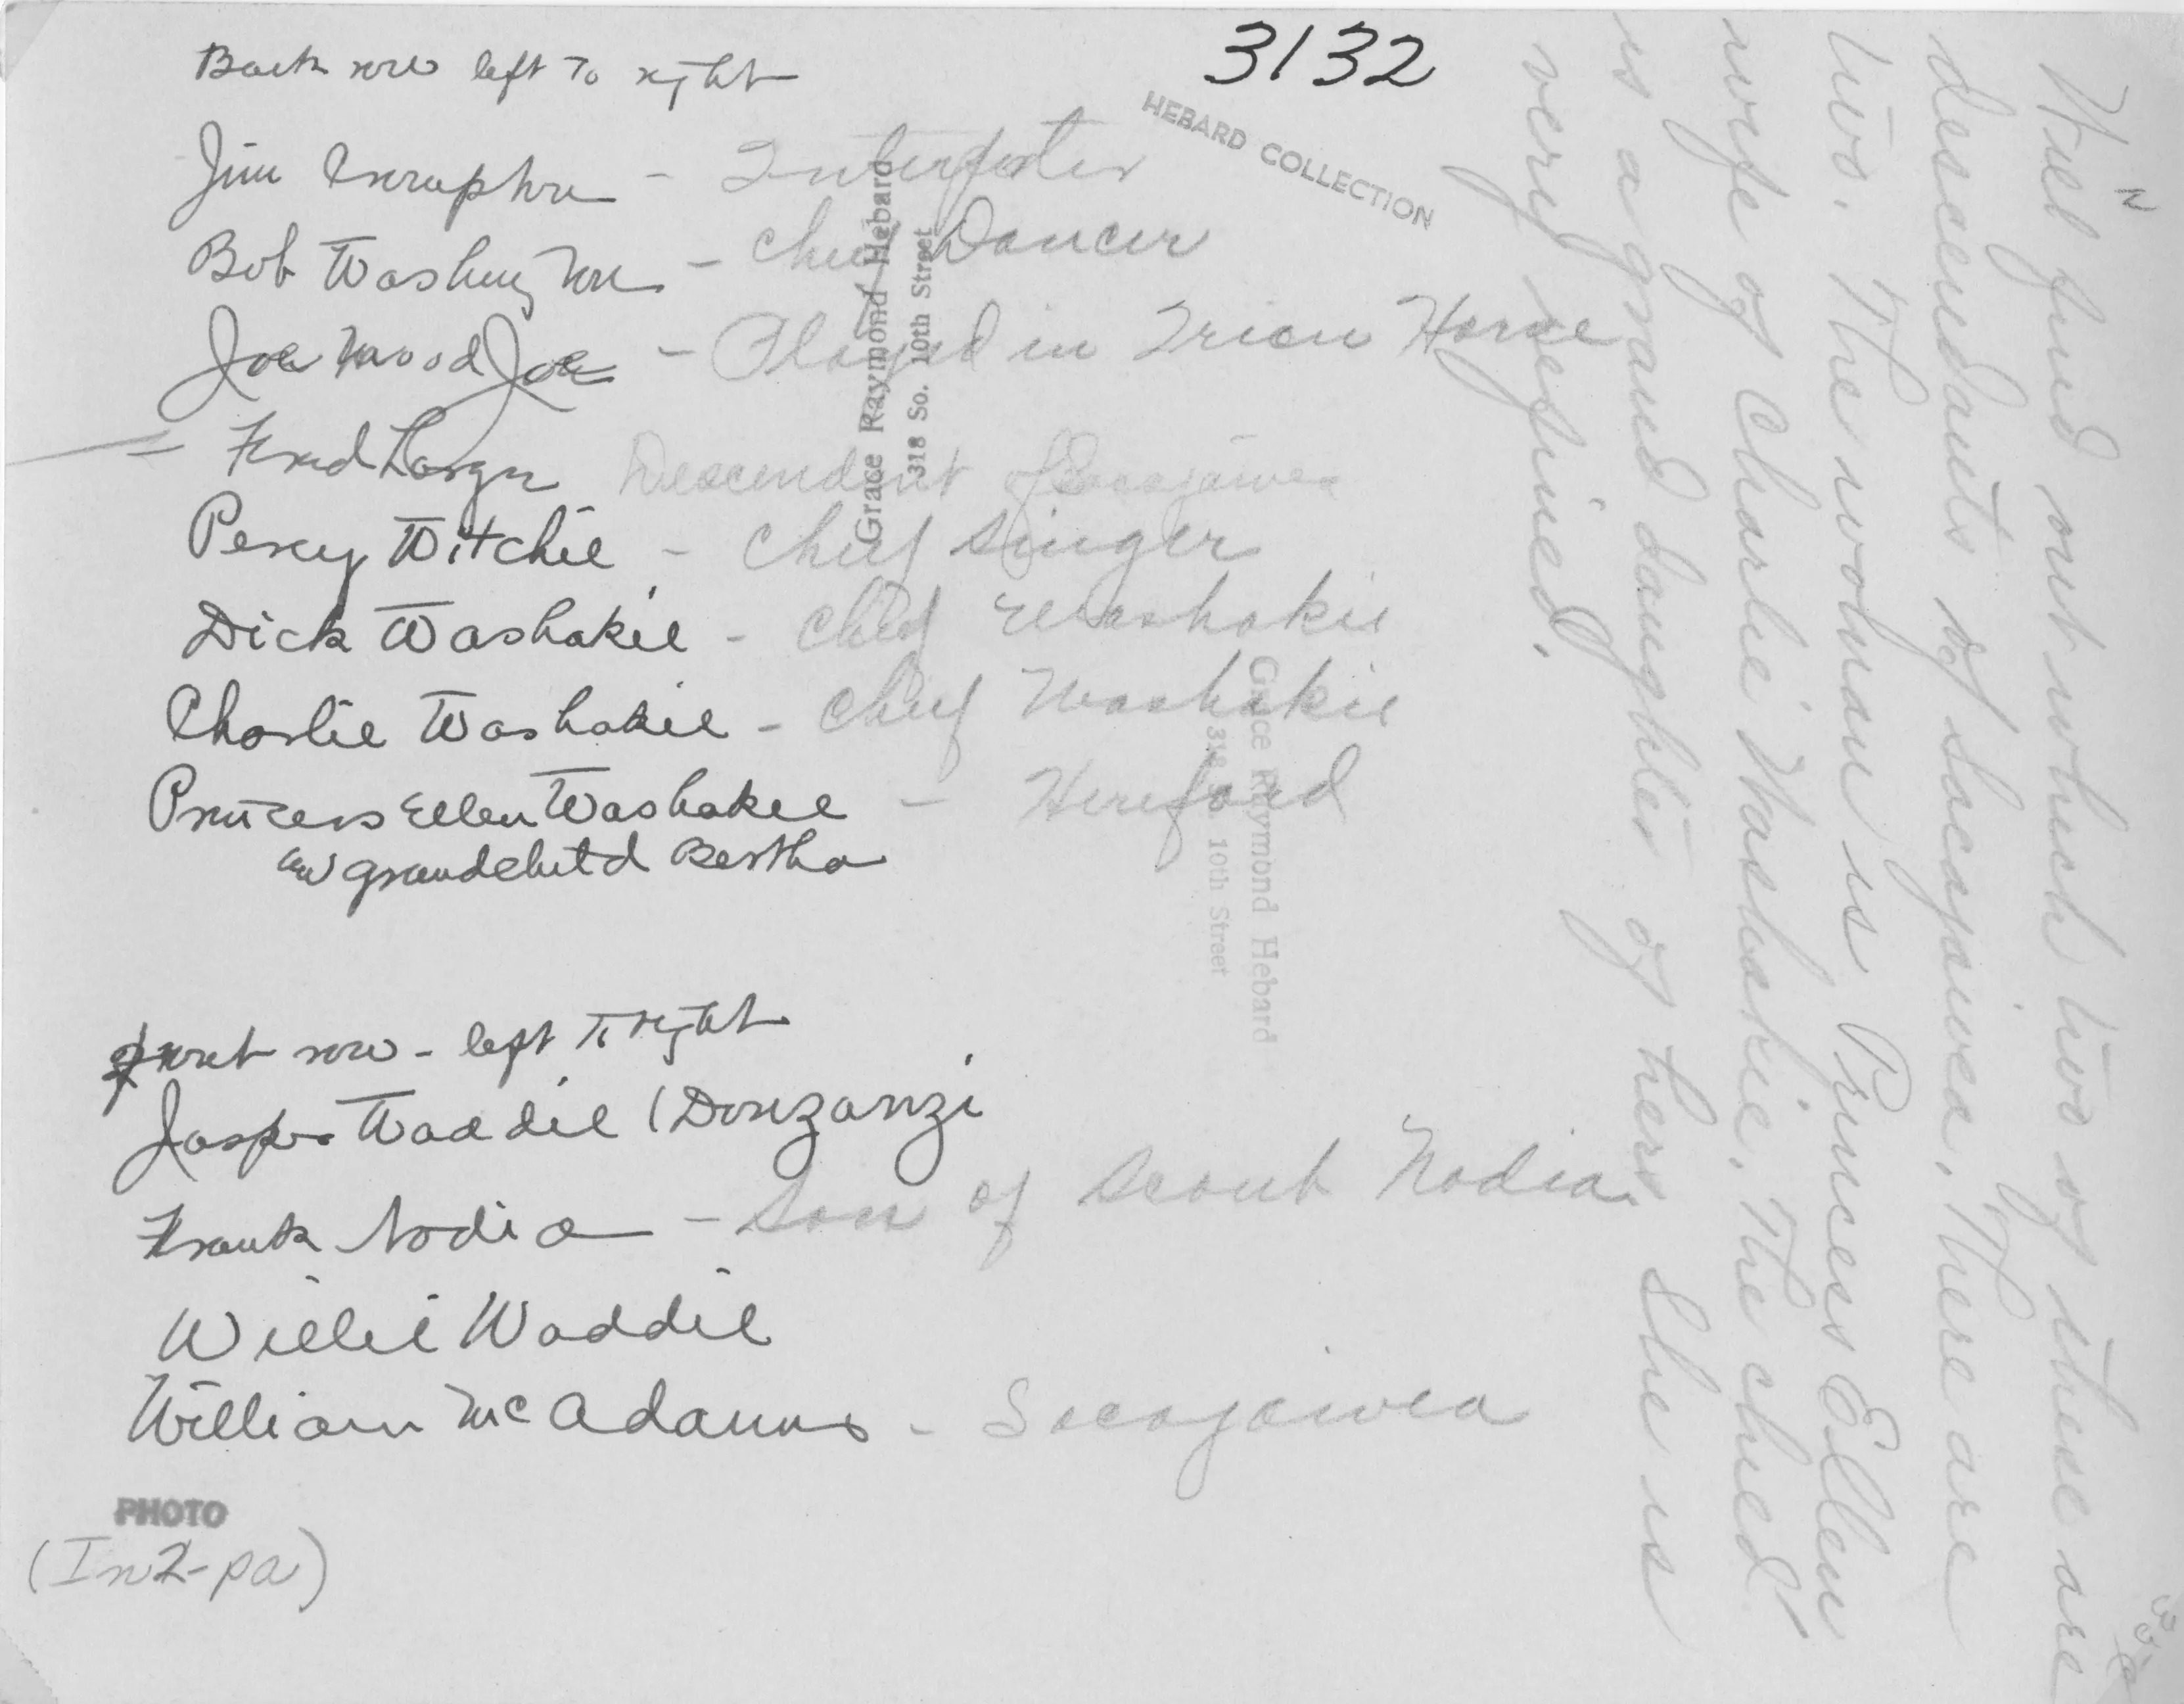 3132
HEBARD COLLECTION
Back row left to right
Jim - Interpreter
Bob Washington - Chief Dancer
Joe Wood Joe - Played in Iron Horse
Fred Large Descendent of Sacajawea
Percy Witchie - Chief Singer
Dick Washakie - Chief Washakie
Charlie Washakie - Chief Washakie
Princess Ellen Washakie - Hereford
and grandchild Bertha
Front row - left to right
Jasper Waddie (Donzanzi
Frank Nodia - Son of Scout Nodia
Willie Waddie
William McAdams - Sacajawea
PHOTO
(In2-pa)
Grace Raymond Hebard
318 So. 10th Street
Grace Raymond Hebard
318 So 10th Street
Will find out which two of these are
descendants of Sacajawea. There are
two. The woman is Princess Ellen
wife of Charlie Washakie. The child
is a grand daughter of hers. She is
very refined.